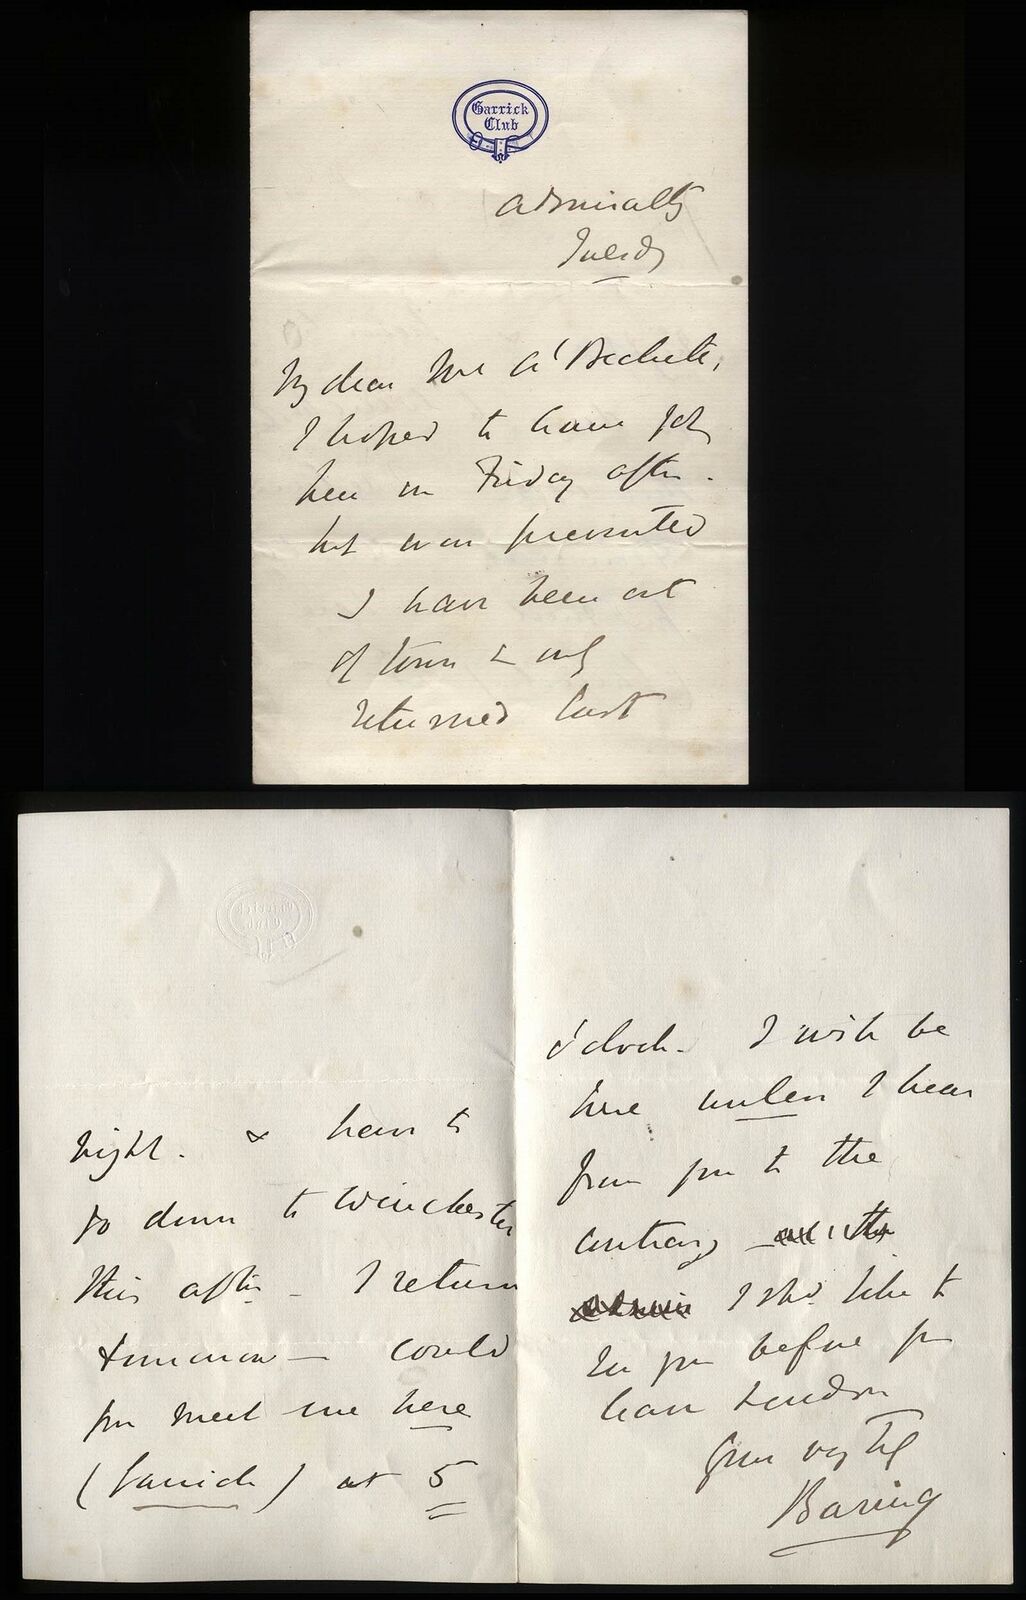 Garrick
Club
Admiralty
Tuesdy
My dear Mr A'Beckett,
I hoped to have
here on Friday aftn.
but was prevented
I have been out
of town & only
returned last
night. & have to
go down to Winchester
this aftn. – I return
tomorrow – could
you meet me here
(Garrick) at 5
o'clock. I wish be
here unless I hear
from you to the
contrary –
I shd. like to
see you before you
leave London
Yrs vy Tly
Baring